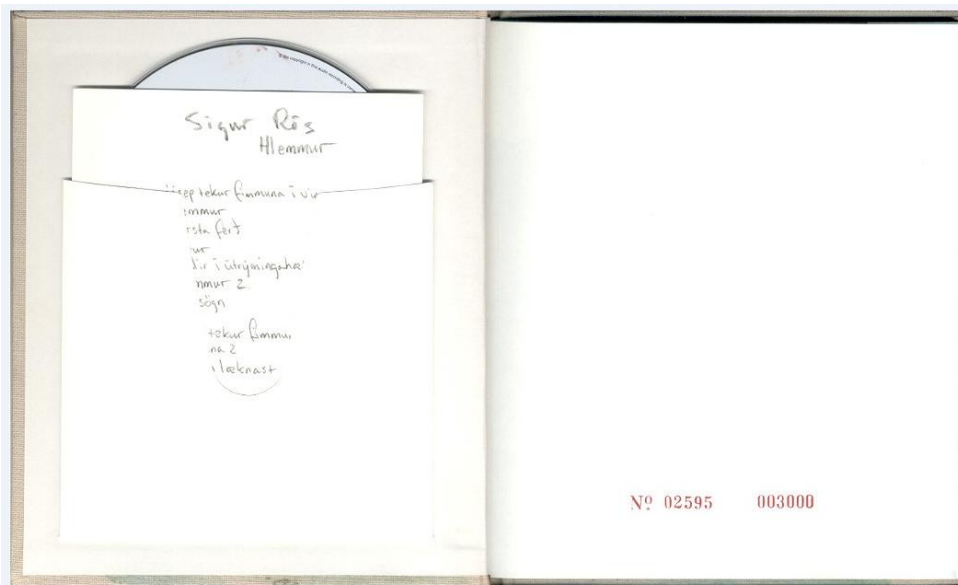 Sigur Rós
Hlemmur
tekur fimmuna í
mmur
rsta ferð
ur
í útrýmingahæ
mmur 2
sögn
tekur fimmu
na 2
læknast
Nº 02595 003000